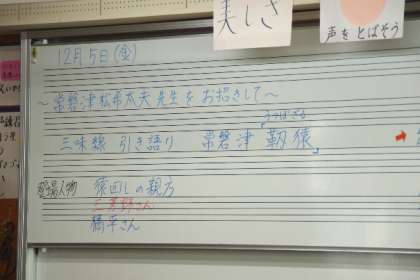 美しさ
声をとばそう
12月5日(金)
～常磐津松希太夫先生をお招きして～
うつぼざる
三味線 引き語り 常磐津 靱猿
登場人物 猿回しの親方
三芳野さん
橘平さん